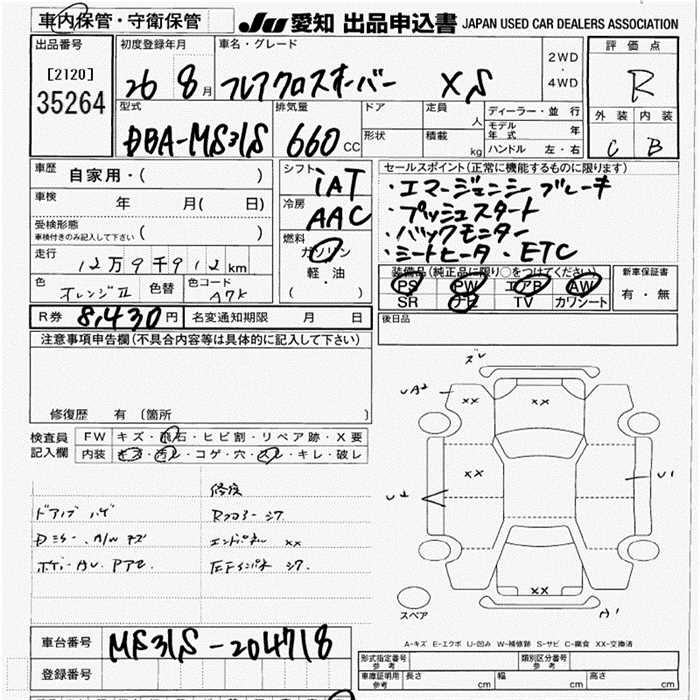 車内保管・守衛保管
JU 愛知 出品申込書 JAPAN USED CAR DEALERS ASSOCIATION
出品番号
[2120]
35264
初度登録年月
26 8月
車名・グレード
フレアクロスオーバー XS
2WD
・
4WD
評価点
R
外装 内装
C B
型式
DBA-MS31S
排気量
660 CC
ドア
形状
定員 人
積載 kg
ディーラー・並行
モデル年式 年
ハンドル 左・右
車歴 自家用・( )
車検 年 月( 日)
受検形態 ( )
車検付きのみ記入して下さい
走行 12万9千912km
色 オレンジⅡ
色替
色コード A7K
シフト iAT
冷房 AAC
燃料
ガソリン
軽油
( ・ )
セールスポイント(正常に機能するものに限ります)
・エマージェンシーブレーキ
・プッシュスタート
・バックモニター
・シートヒータ・ETC
装備品(純正品に限り○をつけてください)
PS PW エアB AW
SR ナビ TV カワシート
新車保証書
有・無
R券 8,430円
名変通知期限 月 日
後日品
注意事項申告欄(不具合内容等は具体的に記入して下さい)
修復歴 有 〔箇所 〕
検査員記入欄
FW キズ・飛石・ヒビ割・リペア跡・X要
内装 キズ・汚レ・コゲ・穴・スレ・キレ・破レ
ズレ
UA2
XX
XX
XX
U2
U1
XX
A1
スペア
修復
ドアバイザ
Dミラー、A/Wキズ
Rフロアーシワ
エンドパネル XX
A-キズ E-エクボ U-凹み W-補修跡 S-サビ C-腐食 XX-交換済
車台番号 MS31S-204718
登録番号
形式指定番号 参考
類別区分番号 参考
車庫証明用 参考
長さ cm
幅 cm
高さ cm